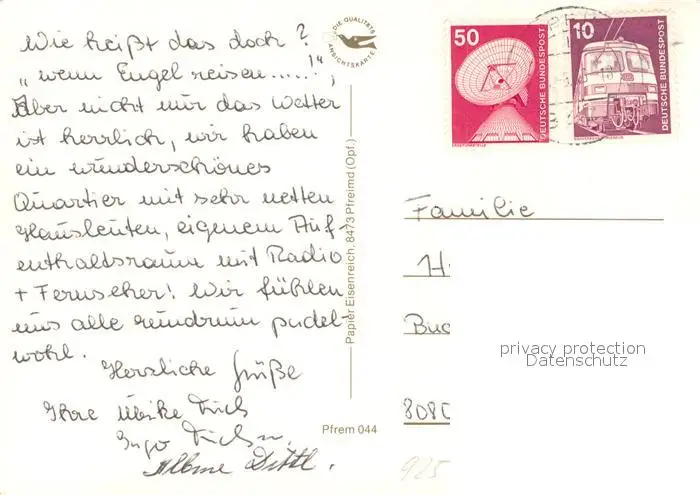 Wie heißt das doch?
"wenn Engel reisen......!",
Aber nicht nur das Wetter
ist herrlich, wir haben
ein wunderschönes
Quartier mit sehr netten
Hausleuten, eigenem Auf-
enthaltsraum mit Radio
+ Fernseher! Wir fühlen
uns alle rundrum pudel-
wohl.
Herzliche Grüße
Ihre
DIE QUALITÄTS
ANSICHTSKARTE
Papier Eisenreich, 8473 Pfreimd (Opf.)
Pfrem 044
50
DEUTSCHE BUNDESPOST
10
DEUTSCHE BUNDESPOST
Familie
H
Buc
8080
privacy protection
Datenschutz
925